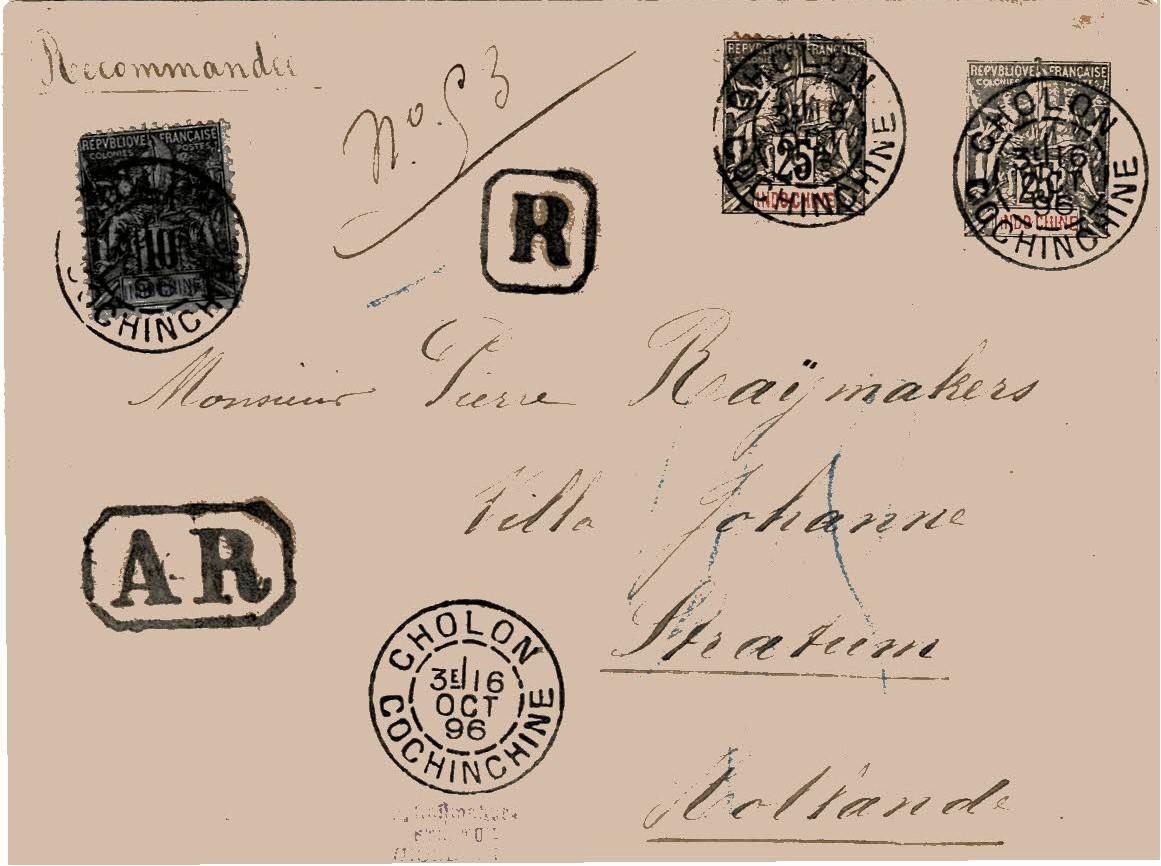 Recommandée
No. 53
REPVBLIQVE FRANÇAISE
COLONIES POSTES
10
INDO-CHINE
COCHINCHINE
R
REPVBLIQVE FRANÇAISE
25
INDO-CHINE
CHOLON
3E/16
COCHINCHINE
REPVBLIQVE FRANÇAISE
COLONIES POSTES
INDO-CHINE
CHOLON
3E/16
OCT
96
COCHINCHINE
Monsieur Pierre Raÿmakers
Villa Johanne
Stratum
Hollande
AR
CHOLON
3E/16
OCT
96
COCHINCHINE